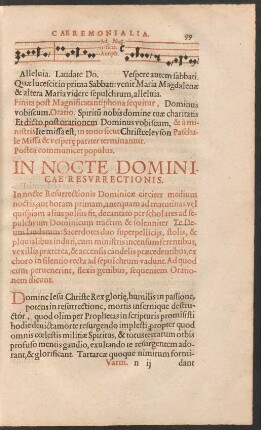 CAEREMONIALIA. 99
Ad Mag.
nificat
Antiph.
Alleluia. Laudate Do. Vespere autem sabbati.
Quæ lucescit in prima Sabbati: venit Maria Magdalenæ
& altera Maria videre sepulchrum, alleluia.
Finita post Magnificat antiphona sequitur, Dominus
vobiscum. Oratio. Spiritū nobis domine tuæ charitatis
Et dicto post orationem Dominus vobiscum, & a mi-
nistris Ite missa est, in
Christe leyson Pascha-
le Missa & vesperę pariter terminantur.
Postea communicet populus.
IN NOCTE DOMINI-
CAE RESVRRECTIONIS.
In nocte Resurrectionis Dominicæ circiter medium
noctis, aut horam primam, antequam ad matutinas vel
quispiam alius pulsus fit, decantato per scholares ad se-
pulchrum Dominicum noctem & solenniter Te De-
um laudamus: Sacerdotes duo superpelliciis, stolis, &
pluuialibus induti, cum ministris incensum ferentibus,
vexillis,
& accensis candelis præcedentibus, ex
choro in silentio recta ad sepulchrum vadunt. Ad quod
cum peruenerint, flexis genibus, sequentem Oratio-
nem dicunt.
Domine Iesu Christe Rex glorię, humilis in passione,
potens in resurrectione, mortis infernique destru-
ctor, quod olim per Prophetas in scripturis promisisti
hodie deuicta morte resurgendo implesti, propter quod
omnis cœlestis militiæ Spiritus, & totus terrarum orbis
profuso mens gaudio, exultando te resurgentem ador-
rant, & glorificant Tartareæ quoque nimirum formi-
Varm. n ij dant